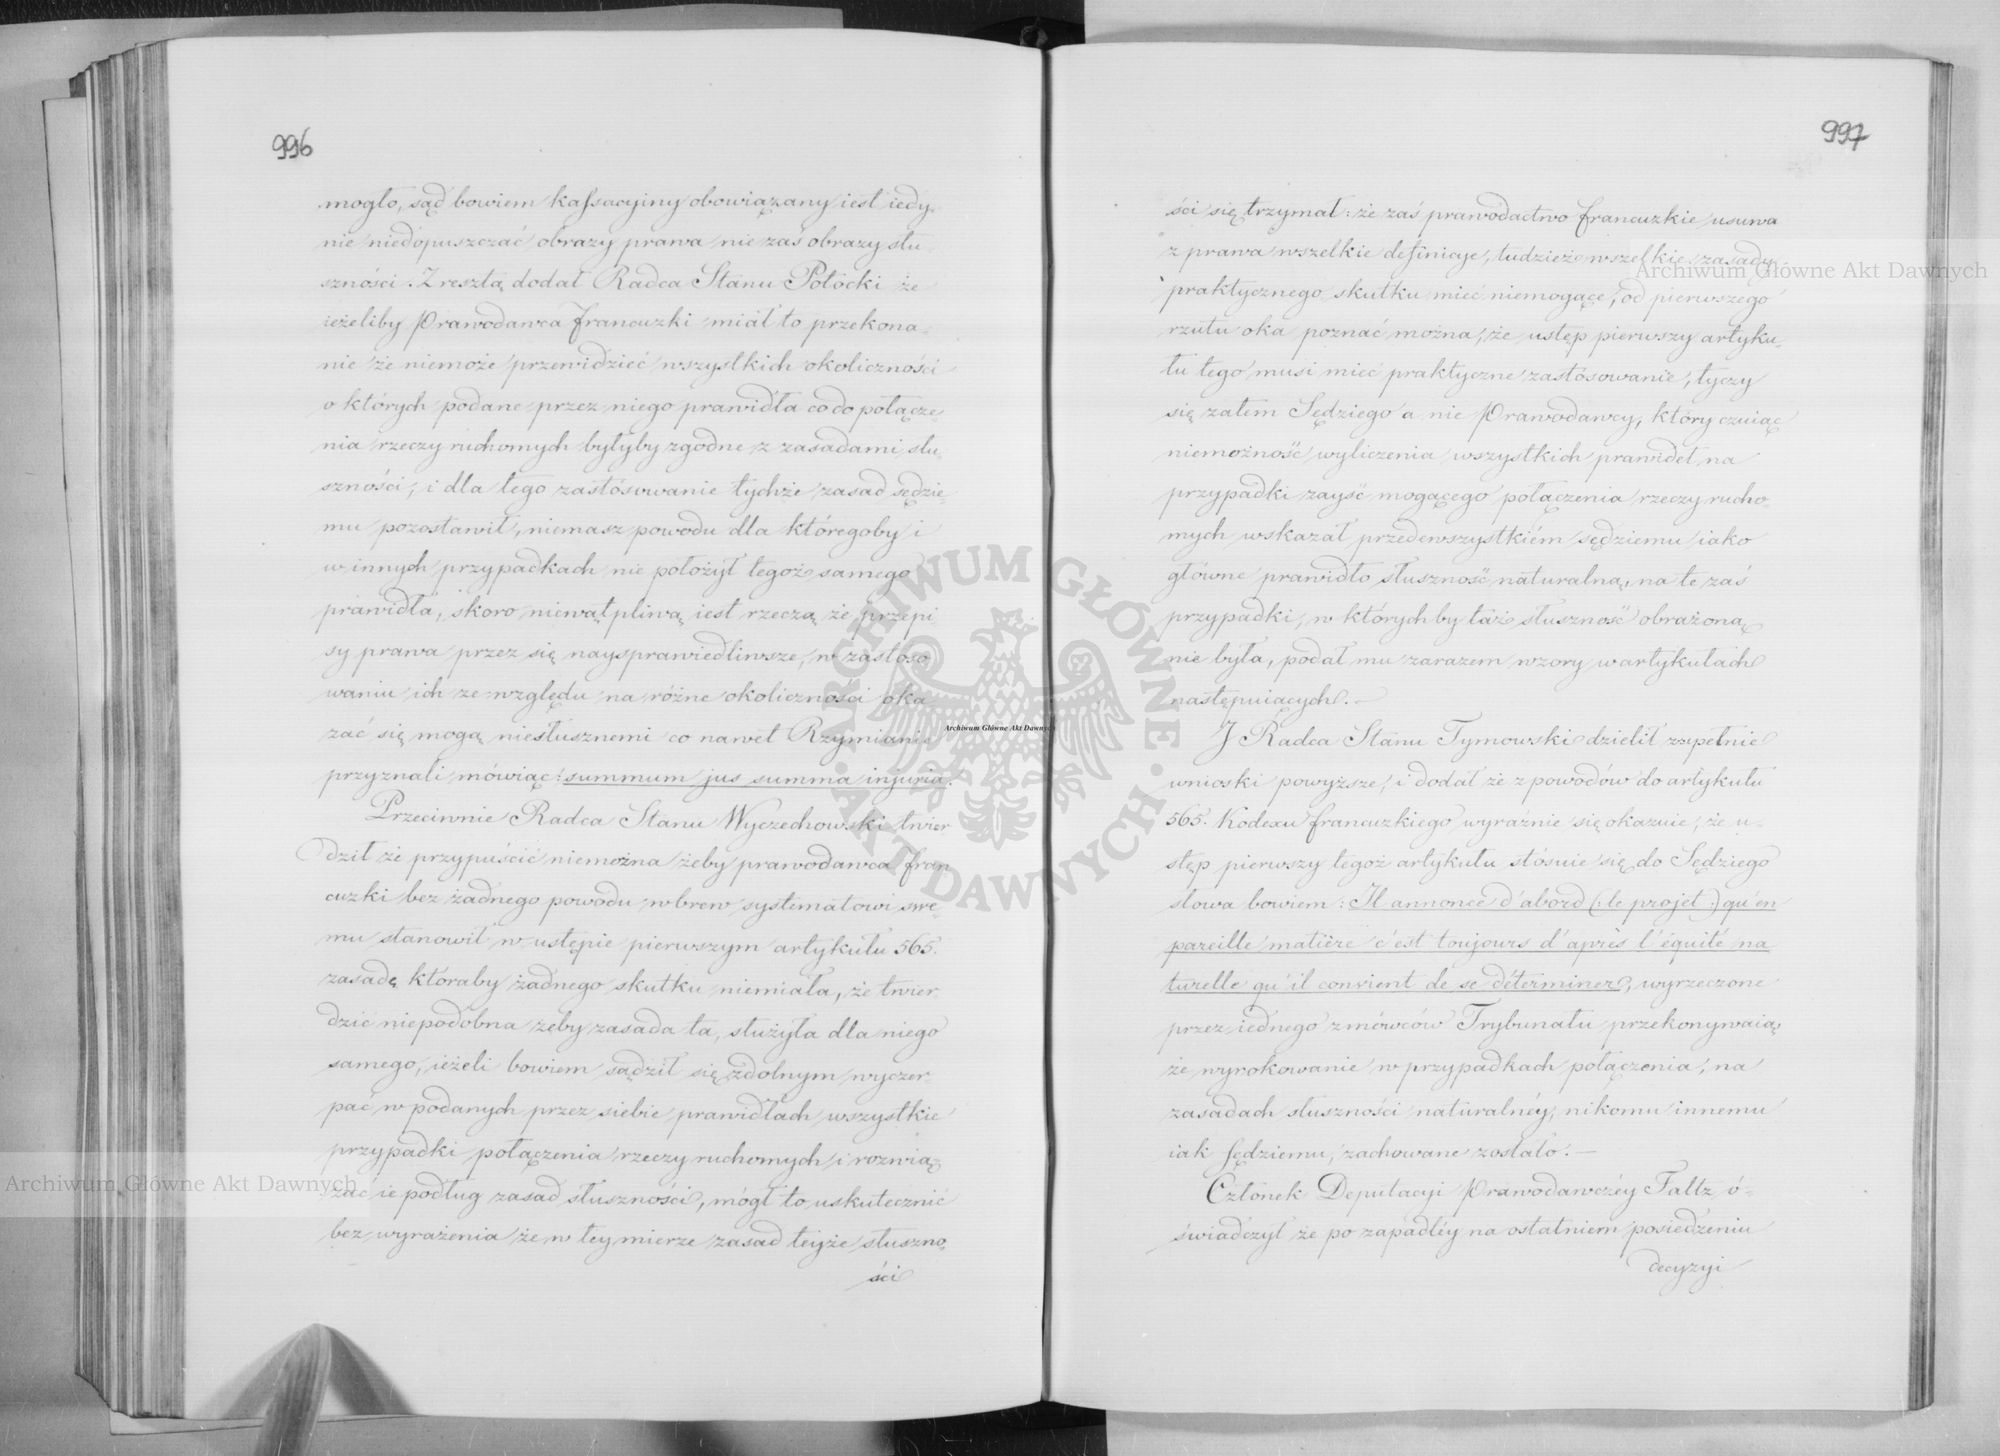 996
mogło, sąd bowiem kassacyiny obowiązany iest iedy-
nie niedopuszczać obrazy prawa nie zaś obrazy słu-
szności. Z resztą dodał Radca Stanu Potocki że
ieżeliby Prawodawca francuzki miał to przekona-
nie że niemoże przewidzieć wszystkich okoliczności
o których podane przez niego prawidła co do połącze-
nia rzeczy ruchomych byłyby zgodne z zasadami słu-
szności, i dla tego zastósowanie tychże zasad sędzie-
mu pozostawił, niemasz powodu dla któregoby i
w innych przypadkach nie położył tegoż samego
prawidła, skoro niewątpliwą iest rzeczą że przepi
sy prawa przez się naysprawiedliwsze, w zastoso
waniu ich ze względu na różne okoliczności oka
zać się mogą niesłusznemi co nawet Rzymianie
przyznali mówiąc: summum jus summa injuria.
Przeciwnie Radca Stanu Wyczechowski twier
dził że przypuścić niemożna żeby prawodawca fran
cuzki bez żadnego powodu wbrew systematowi swe-
mu stanowił w ustępie pierwszym artykułu 565.
zasadę któraby żadnego skutku niemiała, że twier
dzić niepodobna żeby zasada ta, służyła dla niego
samego, ieżeli bowiem sądził się zdolnym wyczer-
pać w podanych przez siebie prawidłach wszystkie
przypadki połączenia rzeczy ruchomych i rozwią
zać ie podług zasad słuszności, mógł to uskutecznić
bez wyrażenia że w tey mierze zasad teyże słuszno-
ści
997
ści się trzymał: że zaś prawodactwo francuzkie usuwa
z prawa wszelkie definicye, tudzież wszelkie zasady
praktycznego skutku mieć niemogące, od pierwszego
rzutu oka poznać można, że ustęp pierwszy artyku-
łu tego musi mieć praktyczne zastósowanie, tyczy
się zatem Sędziego a nie Prawodawcy, który czuiąc
niemożność wyliczenia wszystkich prawideł na
przypadki zayść mogącego połączenia rzeczy rucho-
mych wskazał przedewszystkiém sędziemu iako
główne prawidło słuszność naturalną, na te zaś
przypadki, w którychby taż słuszność obrażoną
nie była, podał mu zarazem wzory w artykułach
następuiących. —
I Radca Stanu Tymowski dzielił zupełnie
wnioski powyższe, i dodał że z powodów do artykułu
565. Kodexu francuzkiego wyraźnie się okazuie, że u-
stęp pierwszy tegoż artykułu stósuie się do Sędziego
słowa bowiem: Il annonce d'abord (:le projet:) qu'en
pareille matière c'est toujours d'après l'équité na
turelle qu'il convient de se déterminer, wyrzeczone
przez iednego z mówców Trybunału przekonywaią
że wyrokowanie w przypadkach połączenia, na
zasadach słuszności naturalnéy, nikomu innemu
iak Sędziemu, zachowane zostało. —
Członek Deputacyi Prawodawczéy Faltz o-
świadczył że po zapadłéy na ostatniem posiedzeniu
decyzyi
Archiwum Główne Akt Dawnych
Archiwum Główne Akt Dawnych
Archiwum Główne Akt Dawnych
ARCHIWUM GŁÓWNE · AKT DAWNYCH ·